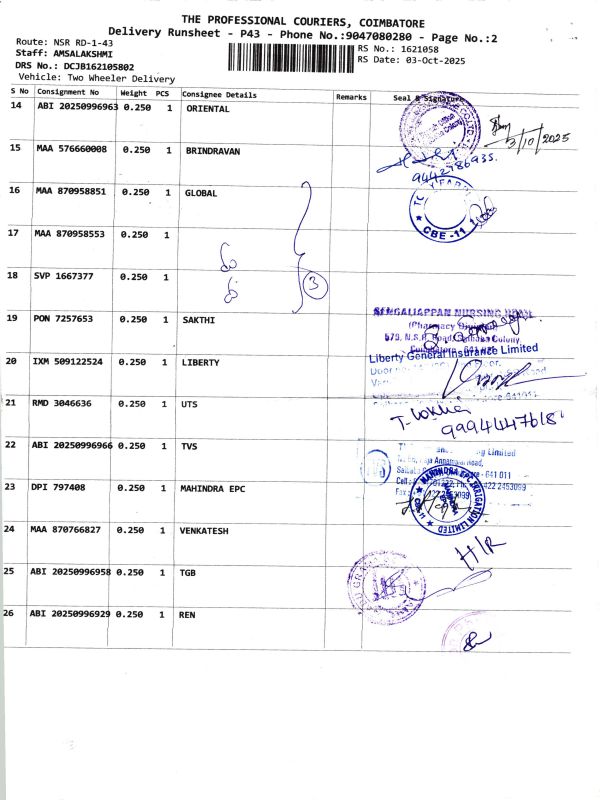 THE PROFESSIONAL COURIERS, COIMBATORE
Delivery Runsheet - P43 - Phone No.:9047080280 - Page No.:2
Route: NSR RD-1-43
RS No.: 1621058
Staff: AMSALAKSHMI
RS Date: 03-Oct-2025
DRS No.: DCJB162105802
Vehicle: Two Wheeler Delivery
S No Consignment No Weight PCS Consignee Details Remarks Seal & Signature
14 ABI 20250996963 0.250 1 ORIENTAL
3/10/2025
15 MAA 576660008 0.250 1 BRINDRAVAN
9442786935.
16 MAA 870958851 0.250 1 GLOBAL
CBE-11
17 MAA 870958553 0.250 1
18 SVP 1667377 0.250 1
3
19 PON 7257653 0.250 1 SAKTHI
SENGALIAPPAN NURSING HOME
(Pharmacy Division)
579, N.S.R. Road, Saibaba Colony,
20 IXM 509122524 0.250 1 LIBERTY
Liberty General Insurance Limited
21 RMD 3046636 0.250 1 UTS
9994447618
22 ABI 20250996966 0.250 1 TVS
Limited
Annamalai Road,
641 011
422 2453099
23 DPI 797408 0.250 1 MAHINDRA EPC
MAHINDRA EPC IRRIGATION LIMITED
24 MAA 870766827 0.250 1 VENKATESH
H/R
25 ABI 20250996958 0.250 1 TGB
26 ABI 20250996929 0.250 1 REN